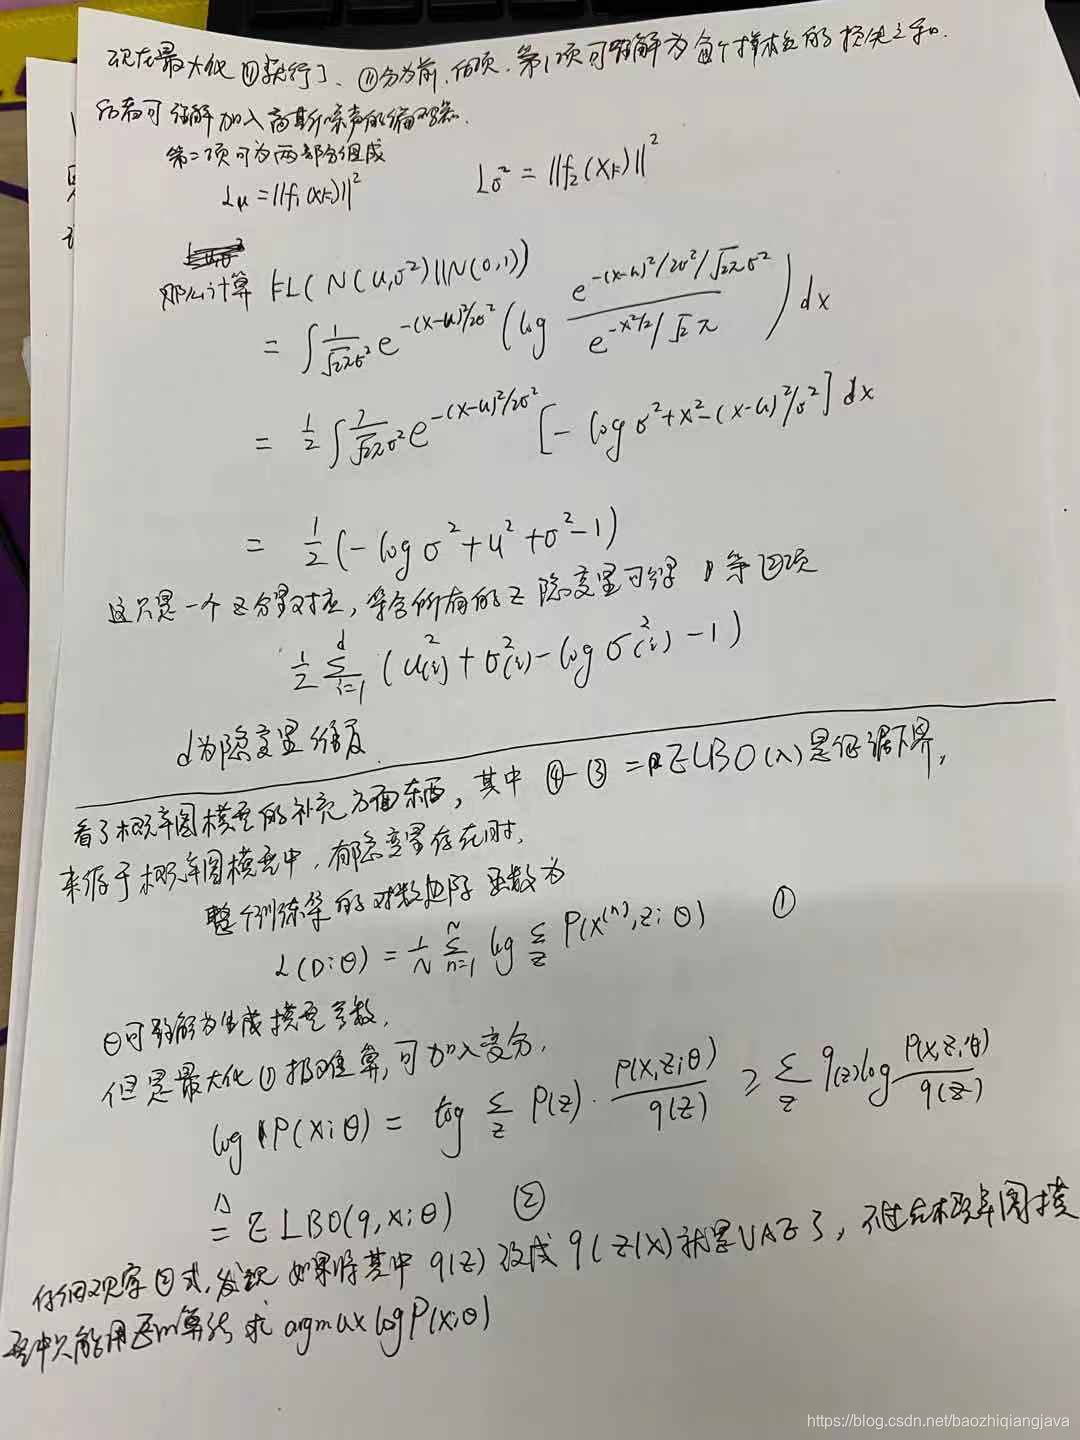 现在最大化⑪就行了、⑪分为前、后项.第1项可理解为每个样本的损失之和.
后者可理解加入高斯噪声的编码器.
第二项可为两部分组成
Lμ = ||f₁(Xk)||² Lσ² = ||f₂(Xk)||²
那么计算 KL(N(μ,σ²)||N(0,1))
= ∫ 1/√2πσ² e^(-(x-μ)²/2σ²) (log (e^(-(x-μ)²/2σ²)/√2πσ²) / (e^(-x²/2)/√2π)) dx
= 1/2 ∫ 1/√2πσ² e^(-(x-μ)²/2σ²) [-logσ²+x²-(x-μ)²/σ²] dx
= 1/2 (-logσ²+μ²+σ²-1)
这只是一个z分量对应, 所有的z隐变量可 第四项
1/2 Σ_{i=1}^{d} (μ²(i) + σ²(i) - logσ²(i) - 1)
d为隐变量维度.
看了概率图模型的补充方面东西, 其中 ④-③ = ELBO(λ)是证据下界,
来源于概率图模型中, 有隐变量存在时,
整个训练集的对数边际函数为
L(D;θ) = 1/N Σ_{n=1}^{N} log Σ_z P(x⁽ⁿ⁾,z;θ) ①
θ可理解为生成模型参数,
但是最大化①很难算, 可加入变分,
log P(x;θ) = log Σ_z P(z)·P(x,z;θ)/q(z) ≥ Σ_z q(z)log P(x,z;θ)/q(z)
≜ ELBO(q,x;θ) ②
仔细观察②式, 发现如果将其中q(z)改成q(z|x)就是VAE了, 不过在概率图模
型中只能用Em算法求 argmax logP(x;θ)
https://blog.csdn.net/baozhiqiangjava